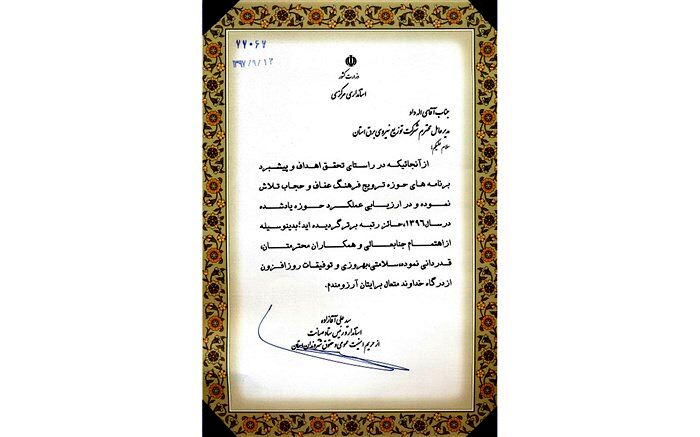 ۷۷۰۶۷
۱۳۹۷/۹/۱۲
وزارت کشور
استانداری مرکزی
جناب آقای اله داد
مدیرعامل محترم شرکت توزیع نیروی برق استان
سلام علیکم؛
از آنجائیکه در راستای تحقق اهداف و پیشبرد
برنامه های حوزه ترویج فرهنگ عفاف و حجاب تلاش
نموده و در ارزیابی عملکرد حوزه یادشده
در سال۱۳۹۶،حائز رتبه برتر گردیده اید؛بدینوسیله
از اهتمام جنابعالی و همکاران محترمتان،
قدردانی نموده،سلامتی،بهروزی و توفیقات روزافزون
از درگاه خداوند متعال برایتان آرزومندم.
سید علی آقازاده
استاندار و رئیس ستاد صیانت
از حریم امنیت عمومی و حقوق شهروندان استان